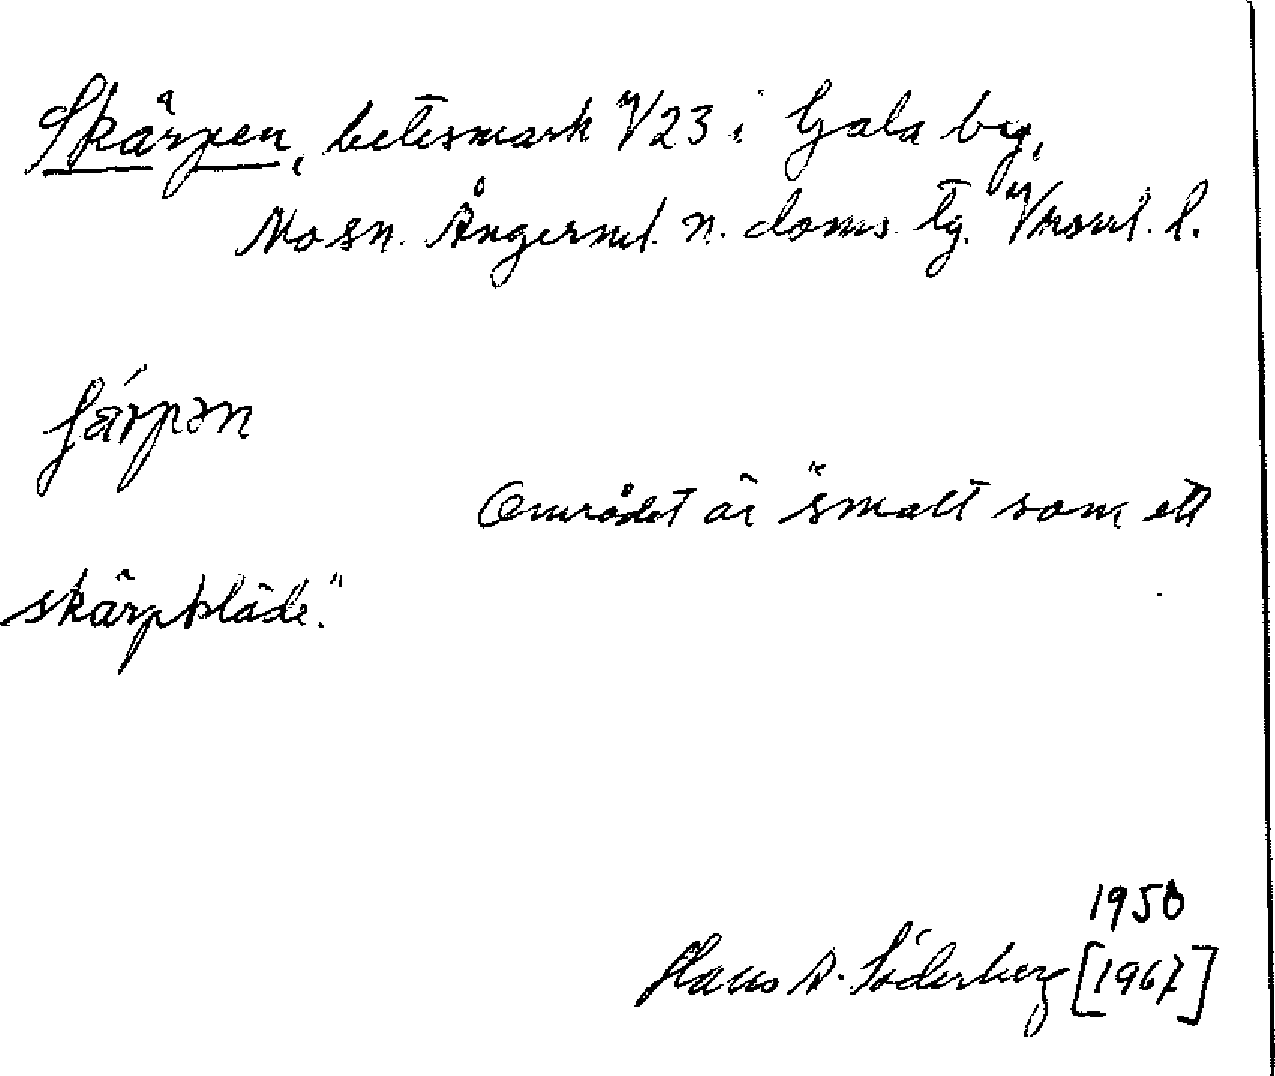 Skärpen, betesmark 4/23 i Gala by,
Mo sn. Ångerml. n. doms. tg. V/norrl. l.
ʃárpən
Området är "smalt som ett
skärpkläde."
1950
Hans A. Söderberg [1967]